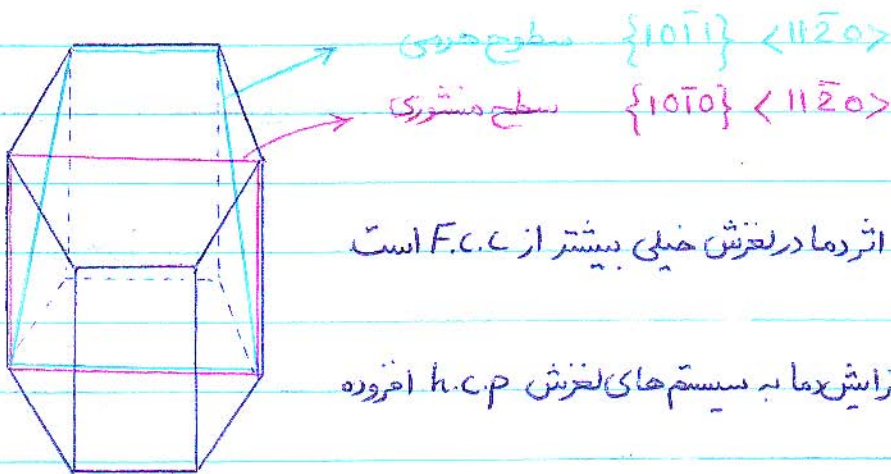 سطوح هرمی {101̄1} <112̄0>
سطح منشوری {101̄0} <112̄0>
اثر دما در لغزش خیلی بیشتر از F.C.C است
زایش دما به سیستم های لغزش h.c.p افزوده